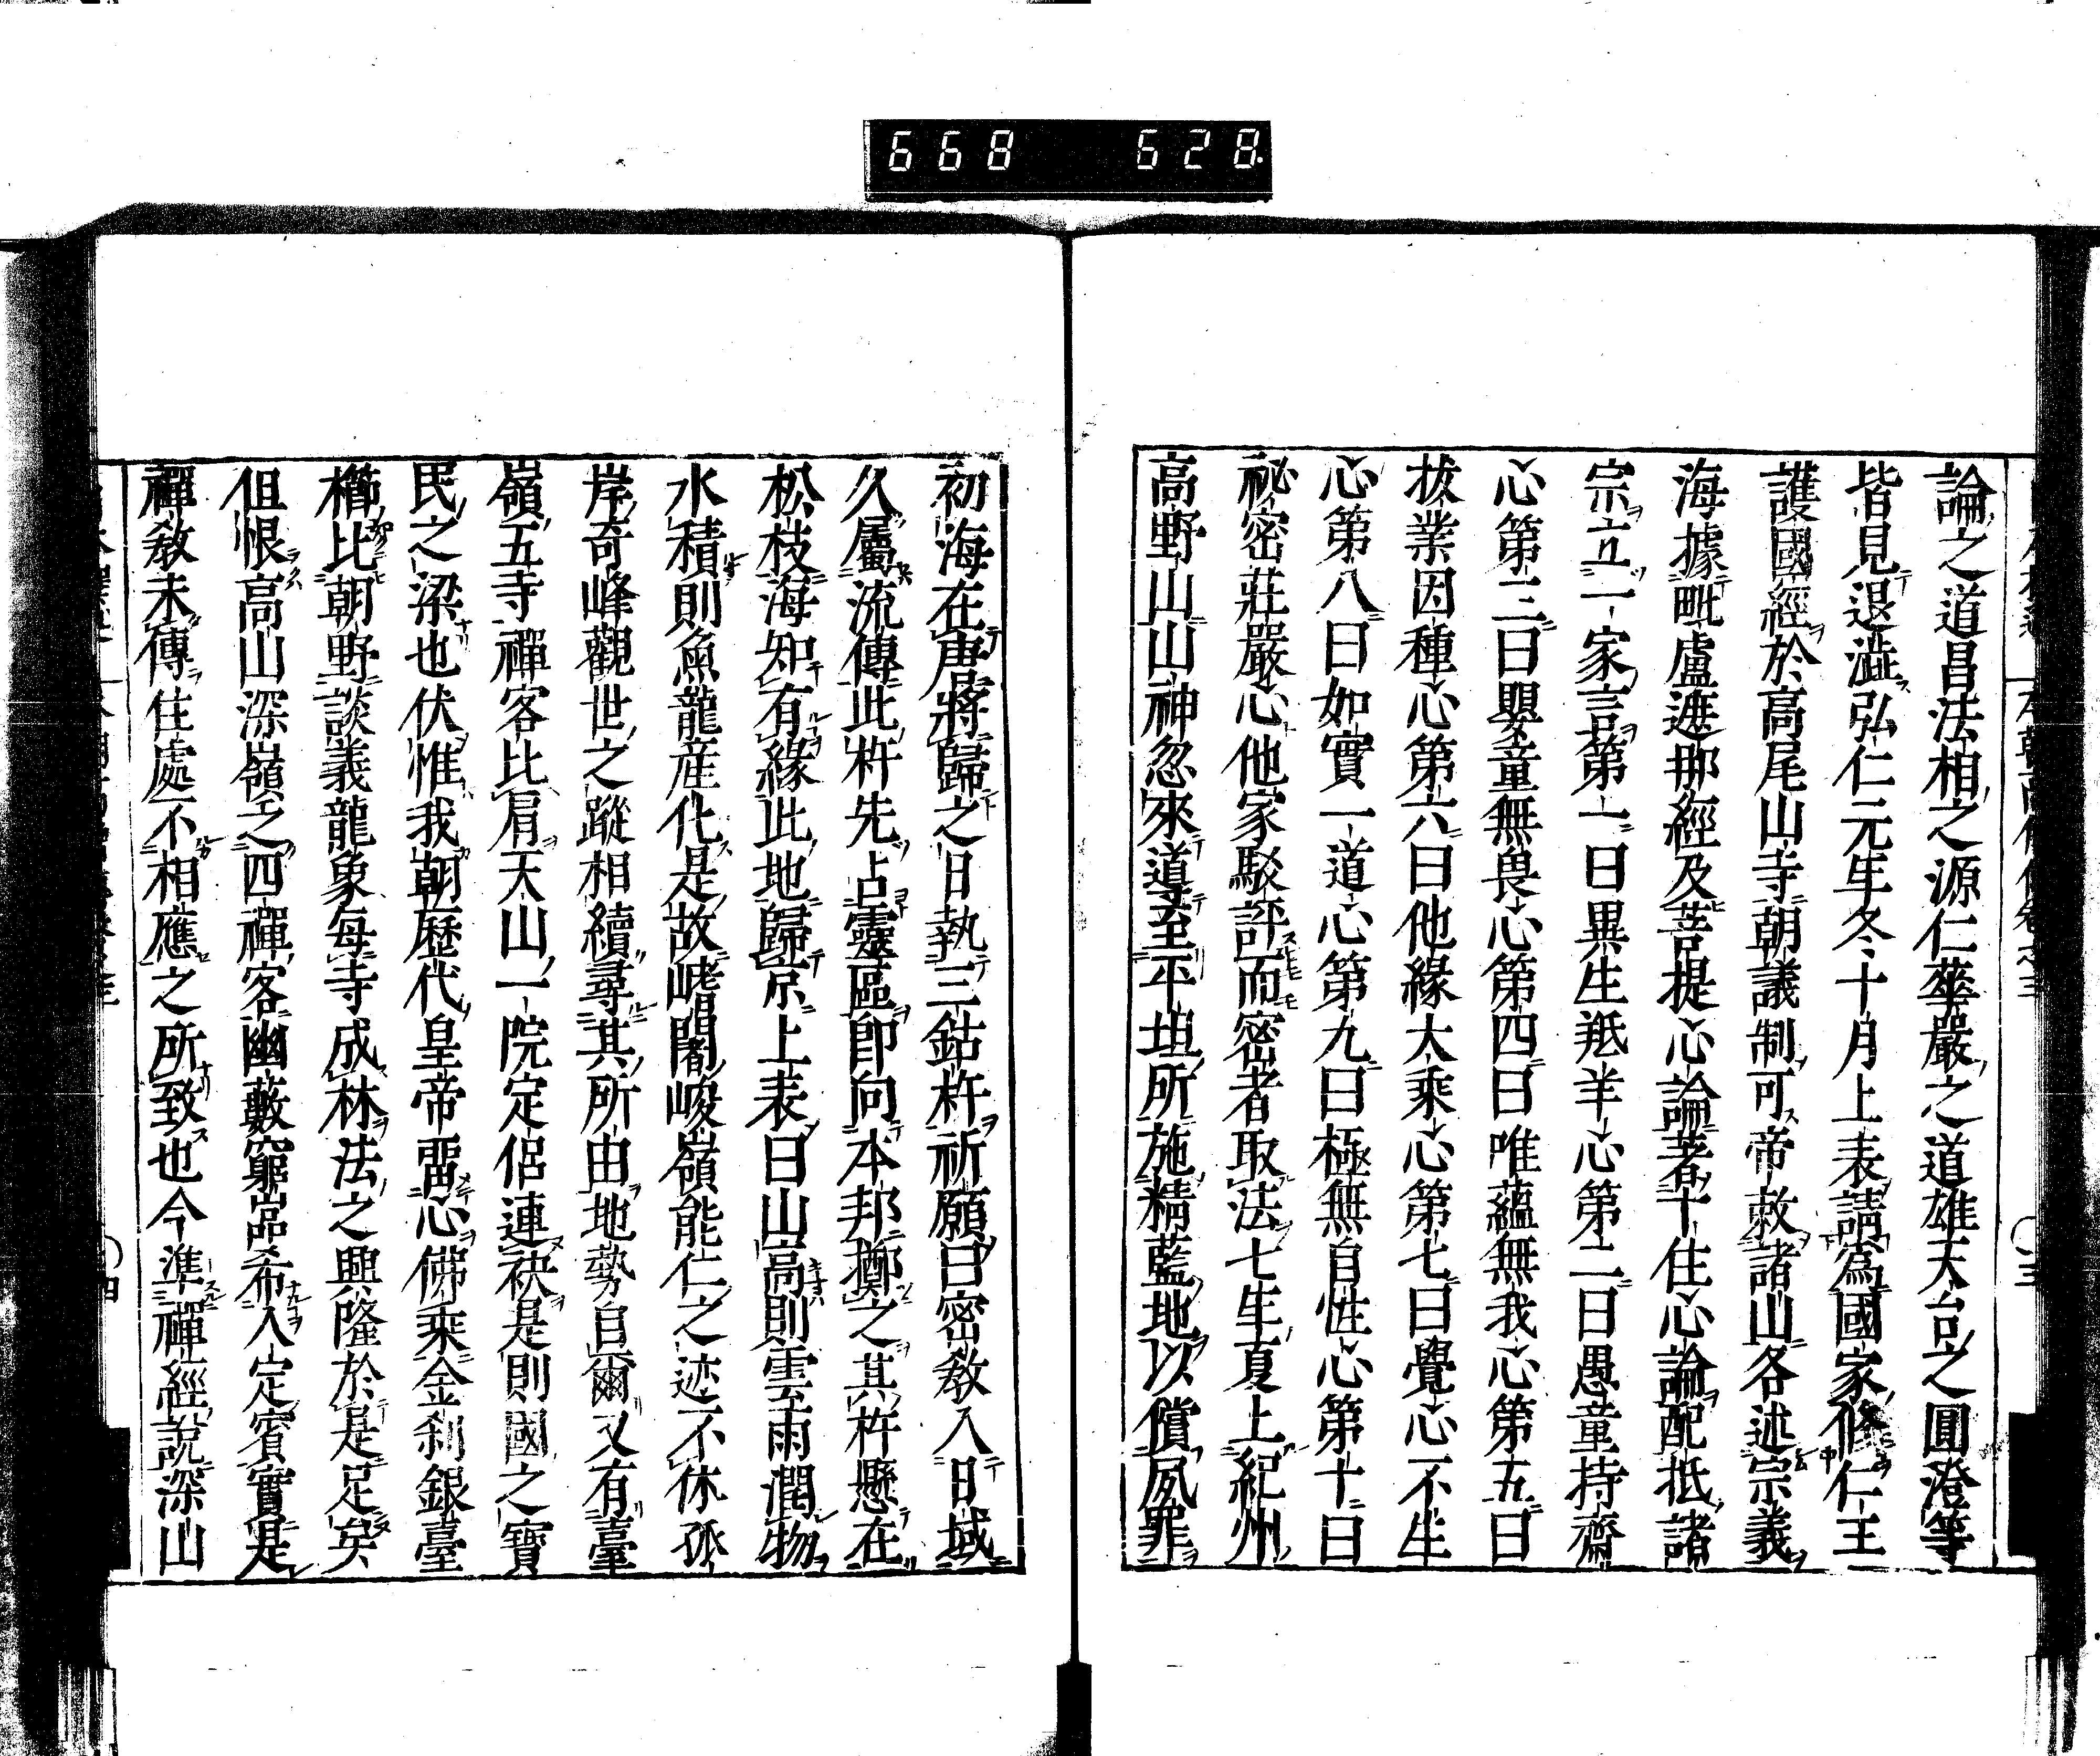 668 628
論之道昌法相之源仁華嚴之道雄天台之圓澄等
皆見退澁弘仁元年冬十月上表請為國家修仁王
護國經於高尾山寺朝議制可帝敕諸山各述宗義
海據毗盧遮那經及菩提心論著十住心論配抵諸
宗立一家言第一曰異生羝羊心第二曰愚童持齋
心第三曰嬰童無畏心第四曰唯蘊無我心第五曰
拔業因種心第六曰他緣大乘心第七曰覺心不生
心第八曰如實一道心第九曰極無自性心第十曰
祕密莊嚴心他家駁評而密者取法七年夏上紀州
高野山山神忽來導至平坦所施精藍地以償夙罪
初海在唐將歸之日執三鈷杵祈願曰密教入日域
久屬流傳此杵先占靈區即向本邦擲之其杵懸在
松枝海知有緣此地歸京上表曰山高則雲雨潤物
水積則魚龍產化是故嶋闍峻嶺能仁之迹不休孤
岸奇峰觀世之蹤相續尋其所由地勢自爾又有臺
嶺五寺禪客比肩天山一院定侶連袂是則國之寶
民之梁也伏惟我朝歷代皇帝留心佛乘金剎銀臺
櫛比朝野談義龍象每寺成林法之興隆於是足矣
但恨高山深嶺乏四禪客幽藪窮嵓希入定賓實是
禪教未傳住處不相應之所致也今準禪經說深山